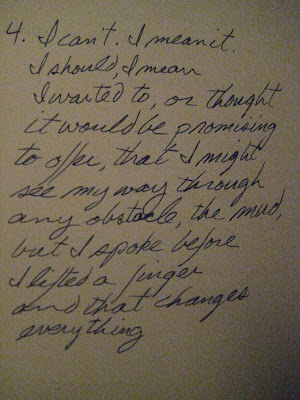 4. I can't. I mean it.
I should, I mean
I wanted to, or thought
it would be promising
to offer, that I might
see my way through
any obstacle, the mud,
but I spoke before
I lifted a finger
and that changes
everything